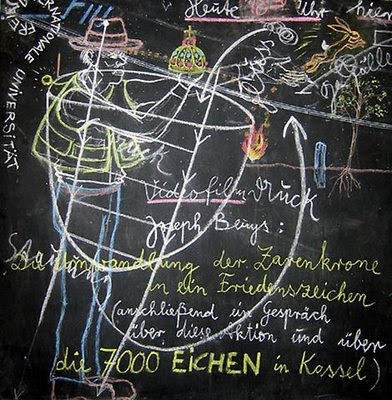 Heute Uhr hier
INTERNATIONALE
UNIVERSITÄT
Videofilm
Druck
Joseph Beuys:
Die Umwandlung der Zarenkrone
in ein Friedenszeichen
(anschließend ein Gespräch
über diese Aktion und über
die 7000 EICHEN in Kassel)